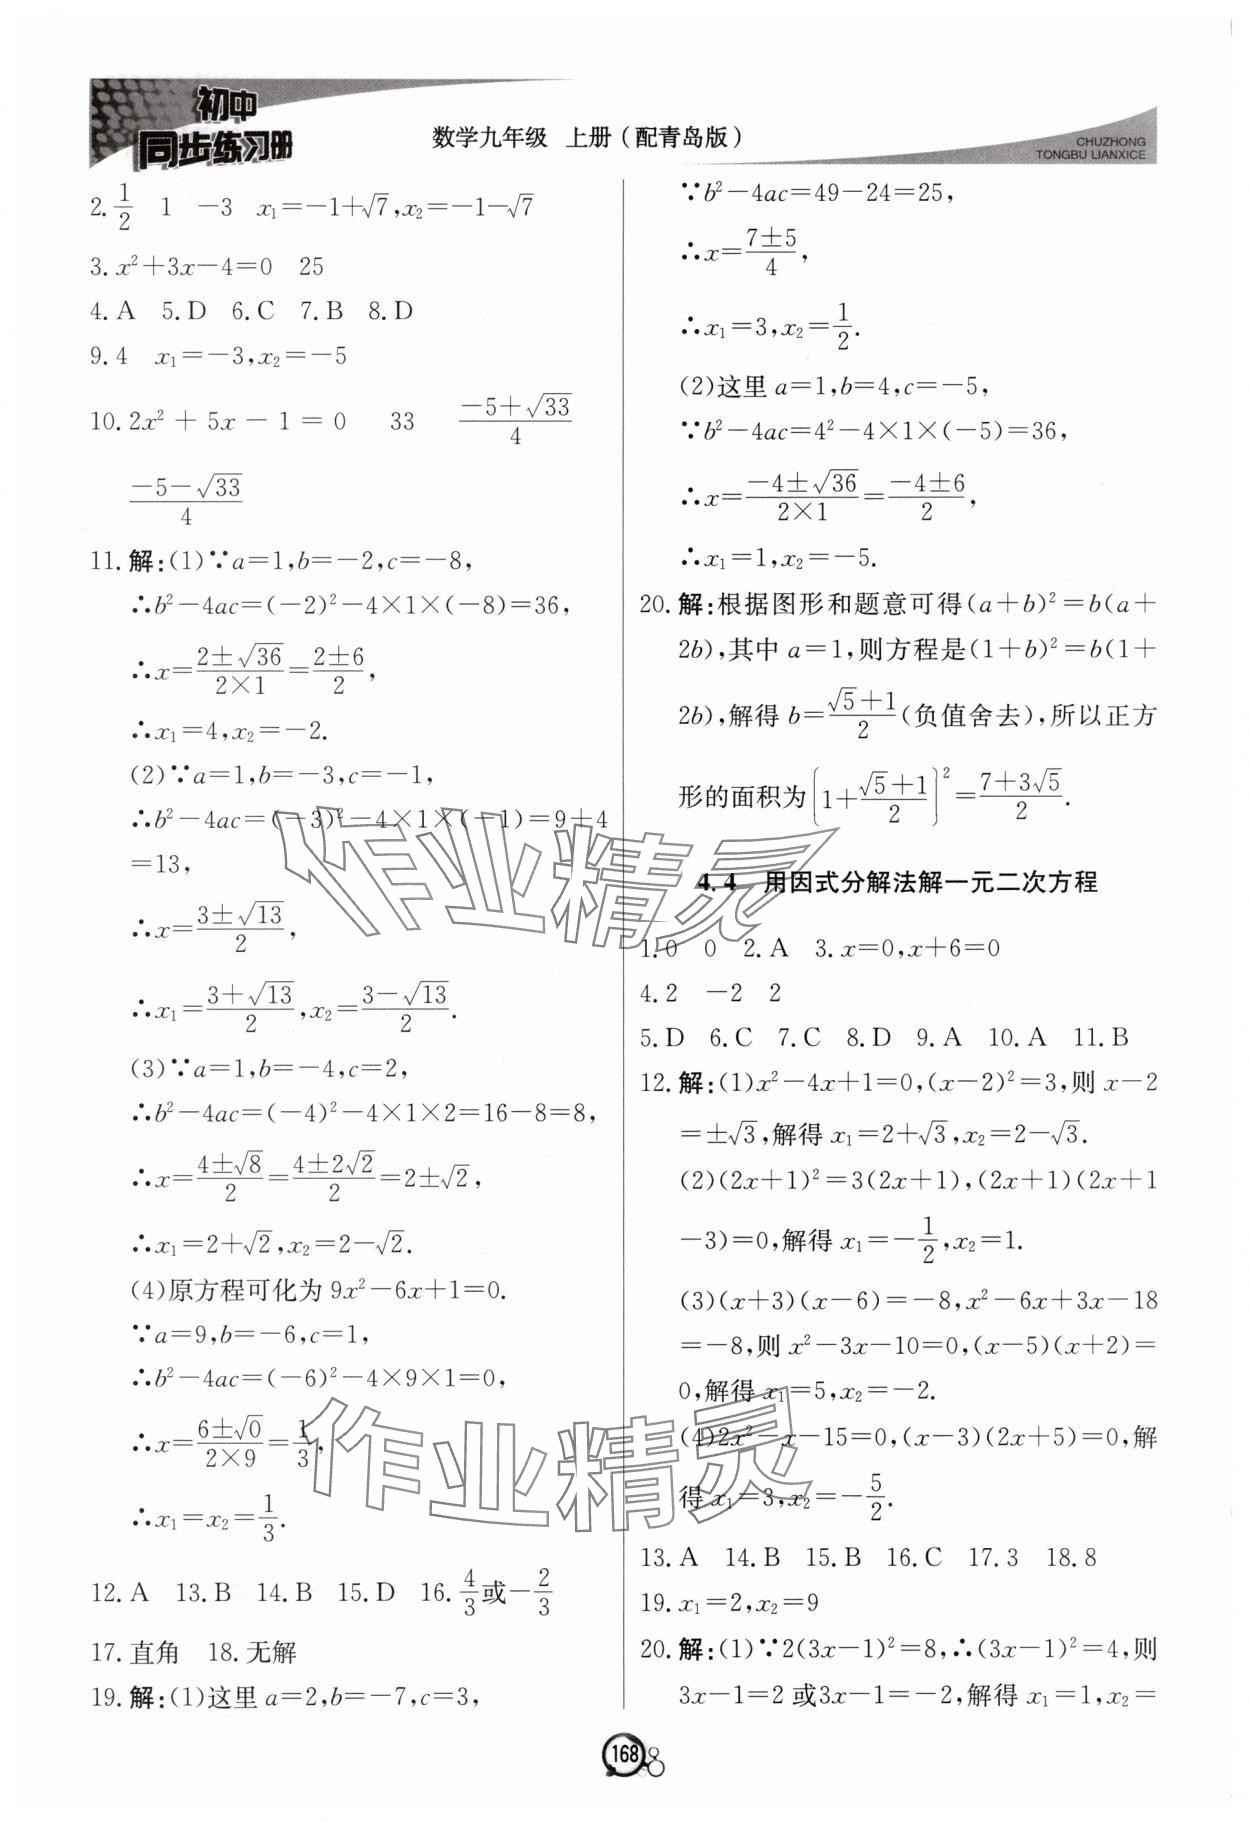 初中
同步练习册
数学九年级 上册(配青岛版)
CHUZHONG
TONGBU LIANXICE
2. 1/2 1 -3 x₁=-1+√7,x₂=-1-√7
3. x²+3x-4=0 25
4. A 5. D 6. C 7. B 8. D
9. 4 x₁=-3,x₂=-5
10. 2x²+5x-1=0 33 (-5+√33)/4
(-5-√33)/4
11. 解:(1)∵a=1,b=-2,c=-8,
∴b²-4ac=(-2)²-4×1×(-8)=36,
∴x=(2±√36)/(2×1)=(2±6)/2,
∴x₁=4,x₂=-2.
(2)∵a=1,b=-3,c=-1,
∴b²-4ac=(-3)²-4×1×(-1)=9+4
=13,
∴x=(3±√13)/2,
∴x₁=(3+√13)/2,x₂=(3-√13)/2.
(3)∵a=1,b=-4,c=2,
∴b²-4ac=(-4)²-4×1×2=16-8=8,
∴x=(4±√8)/2=(4±2√2)/2=2±√2,
∴x₁=2+√2,x₂=2-√2.
(4)原方程可化为 9x²-6x+1=0.
∵a=9,b=-6,c=1,
∴b²-4ac=(-6)²-4×9×1=0,
∴x=(6±√0)/(2×9)=1/3,
∴x₁=x₂=1/3.
12. A 13. B 14. B 15. D 16. 4/3或-2/3
17. 直角 18. 无解
19. 解:(1)这里 a=2,b=-7,c=3,
∵b²-4ac=49-24=25,
∴x=(7±5)/4,
∴x₁=3,x₂=1/2.
(2)这里 a=1,b=4,c=-5,
∵b²-4ac=4²-4×1×(-5)=36,
∴x=(-4±√36)/(2×1)=(-4±6)/2,
∴x₁=1,x₂=-5.
20. 解:根据图形和题意可得(a+b)²=b(a+
2b),其中 a=1,则方程是(1+b)²=b(1+
2b),解得 b=(√5+1)/2(负值舍去),所以正方
形的面积为(1+(√5+1)/2)²=(7+3√5)/2.
4.4 用因式分解法解一元二次方程
1. 0 0 2. A 3. x=0,x+6=0
4. 2 -2 2
5. D 6. C 7. C 8. D 9. A 10. A 11. B
12. 解:(1)x²-4x+1=0,(x-2)²=3,则 x-2
=±√3,解得 x₁=2+√3,x₂=2-√3.
(2)(2x+1)²=3(2x+1),(2x+1)(2x+1
-3)=0,解得 x₁=-1/2,x₂=1.
(3)(x+3)(x-6)=-8,x²-6x+3x-18
=-8,则 x²-3x-10=0,(x-5)(x+2)=
0,解得 x₁=5,x₂=-2.
(4)2x²-x-15=0,(x-3)(2x+5)=0,解
得 x₁=3,x₂=-5/2.
13. A 14. B 15. B 16. C 17. 3 18. 8
19. x₁=2,x₂=9
20. 解:(1)∵2(3x-1)²=8,∴(3x-1)²=4,则
3x-1=2 或3x-1=-2,解得 x₁=1,x₂=
168
作业精灵
作业精灵